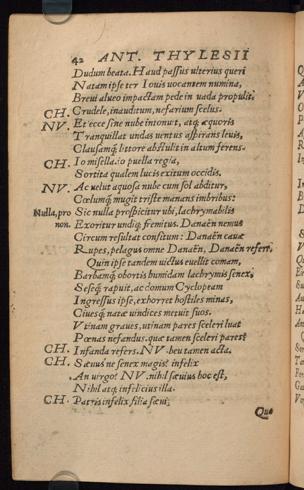 42 ANT. THYLESII
Dudum beata. Haud passus ulterius queri
Natam ipse ter Iouis uocantem numina,
Breui alueo impactam pede in uada propulit.
CH. Crudele, inauditum, nefarium scelus.
NV. Et ecce sine nube intonuit, atq; æquoris
Tranquillat undas uentus aspirans leuis,
Clausamq; littore abstulit in altum ferens.
CH. Io misella: io puella regia,
Sortita qualem lucis exitum occidis.
NV. Ac uelut aquosa nube cum sol abditur,
Cœlumq; mugit triste manans imbribus:
Nulla, pro Sic nulla prospicitur ubi, lachrymabilis
non. Exoritur undiq; fremitus. Danaën nemus
Circum resultat consitum: Danaën cauæ
Rupes, pelagus omne Danaën, Danaën refert.
Quin ipse tandem uictus euellit comam,
Barbamq; obortis humidam lachrymis senex:
Seseq; rapuit, ac domum Cyclopeam
Ingressus ipse, exhorret hostiles minas,
Ciuesq; natæ uindices metuit suos.
Vtinam graues, utinam pares sceleri luat
Pœnas nefandus. quæ tamen sceleri pares?
CH. Infanda refers. NV. heu tamen acta.
CH. Sæuus ne senex magis? infelix
An uirgo? NV. nihil sæuius hoc est,
Nihil atq; infelicius illa.
CH. Patris infelix filia sæui,
Quæ